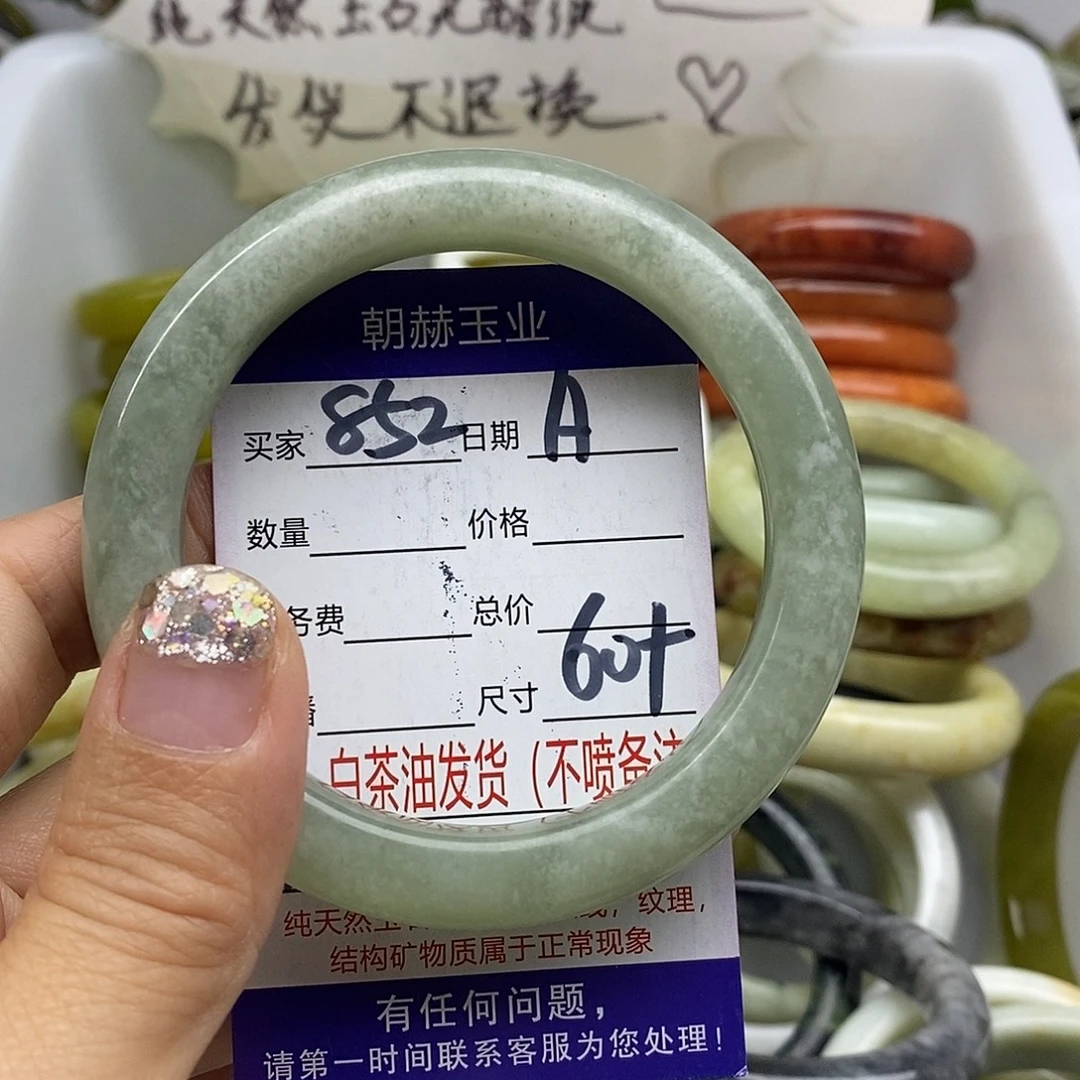 纯天然玉石无瑕疵
售后不退换
朝赫玉业
买家 852 日期 A
数量 价格
务费 总价
尺寸 60+
白茶油发货（不喷备注
纯天然玉石 纹理，
结构矿物质属于正常现象
有任何问题，
请第一时间联系客服为您处理！